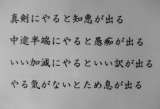 真剣にやると知恵が出る
中途半端にやると愚痴が出る
いい加減にやるといい訳が出る
やる気がないとため息が出る